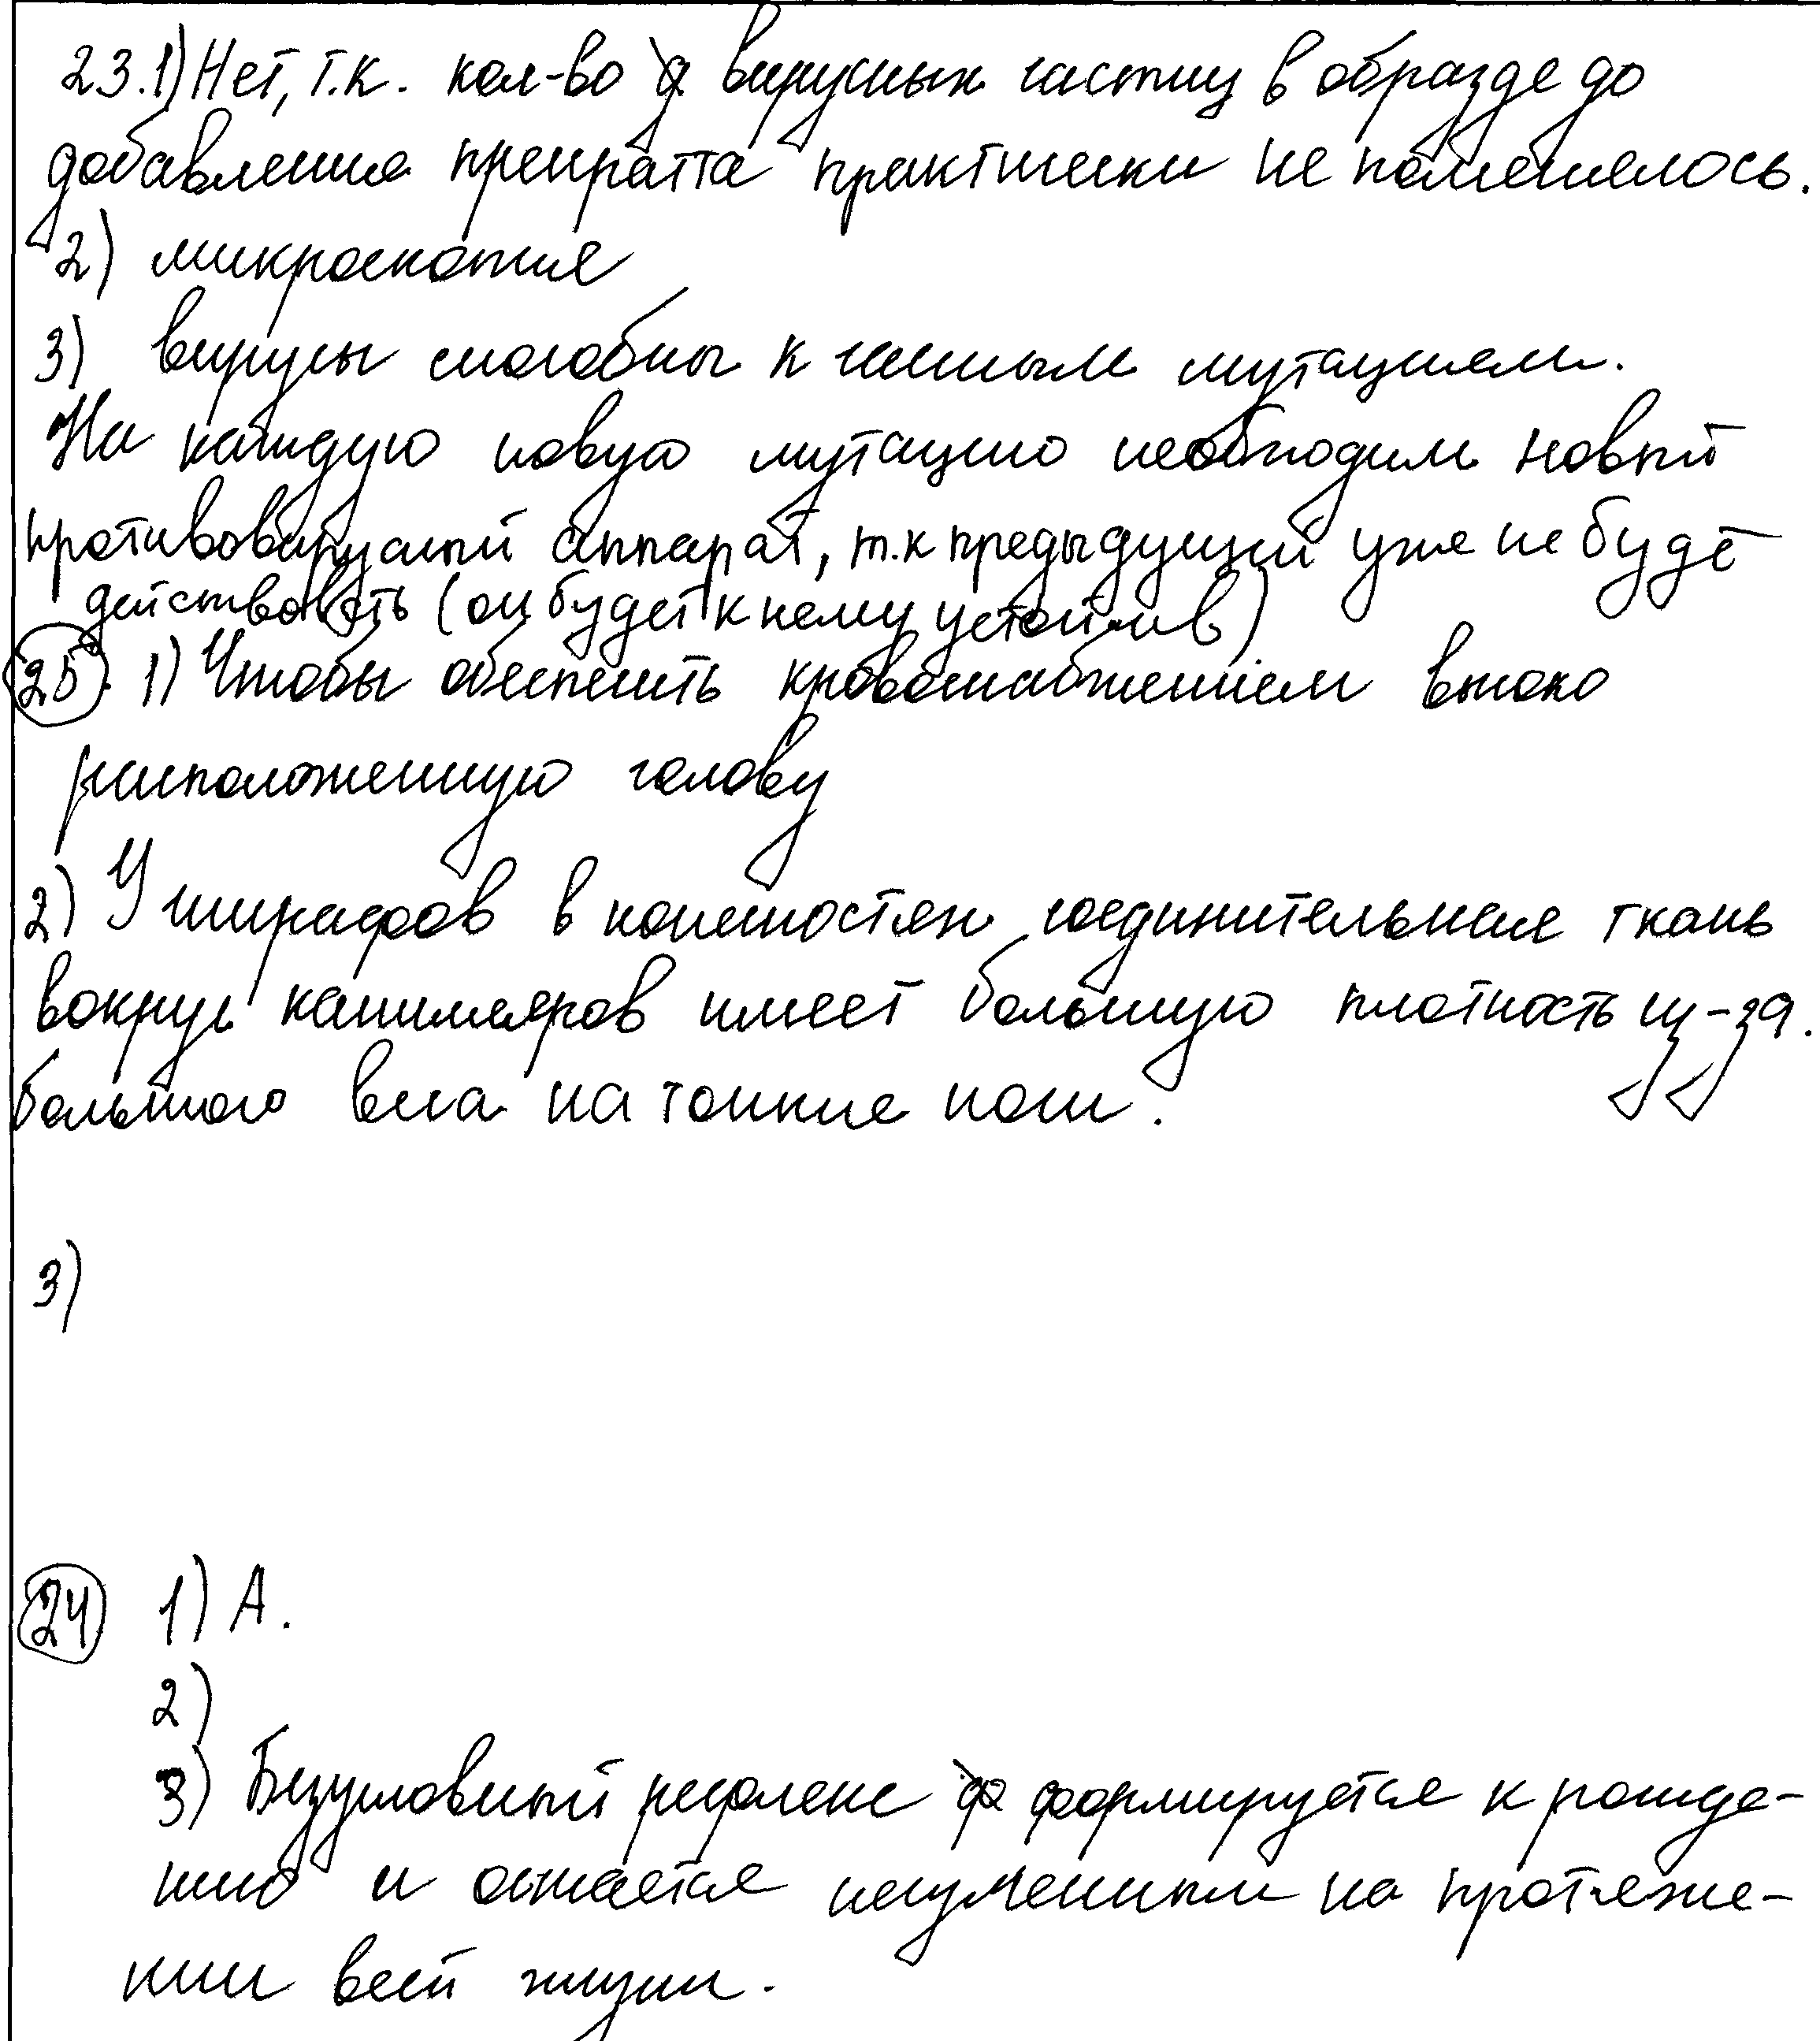 23.1) Нет, т.к. кол-во вирусных частиц в образде до
добавления препратта практически не поменялось.
2) микроскопия
3) вирусы способны к генным мутациям.
На каждую новую мутацию необходим новый
противовирусный аппарат, т.к предыдущий уже не будет
действовать (он будет к нему устойчив)
25. 1) Чтобы обеспечить кровоснабжением высоко
расположенную голову
2) У жирафов в конечностях соединительная ткань
вокруг капилляров имеет большую плотность из-за.
большого веса на тонкие ноги.
3)
24 1) А.
2)
3) Безусловный рефлекс формируется к рожде-
нию и остаётся неизменным на протяже-
нии всей жизни.